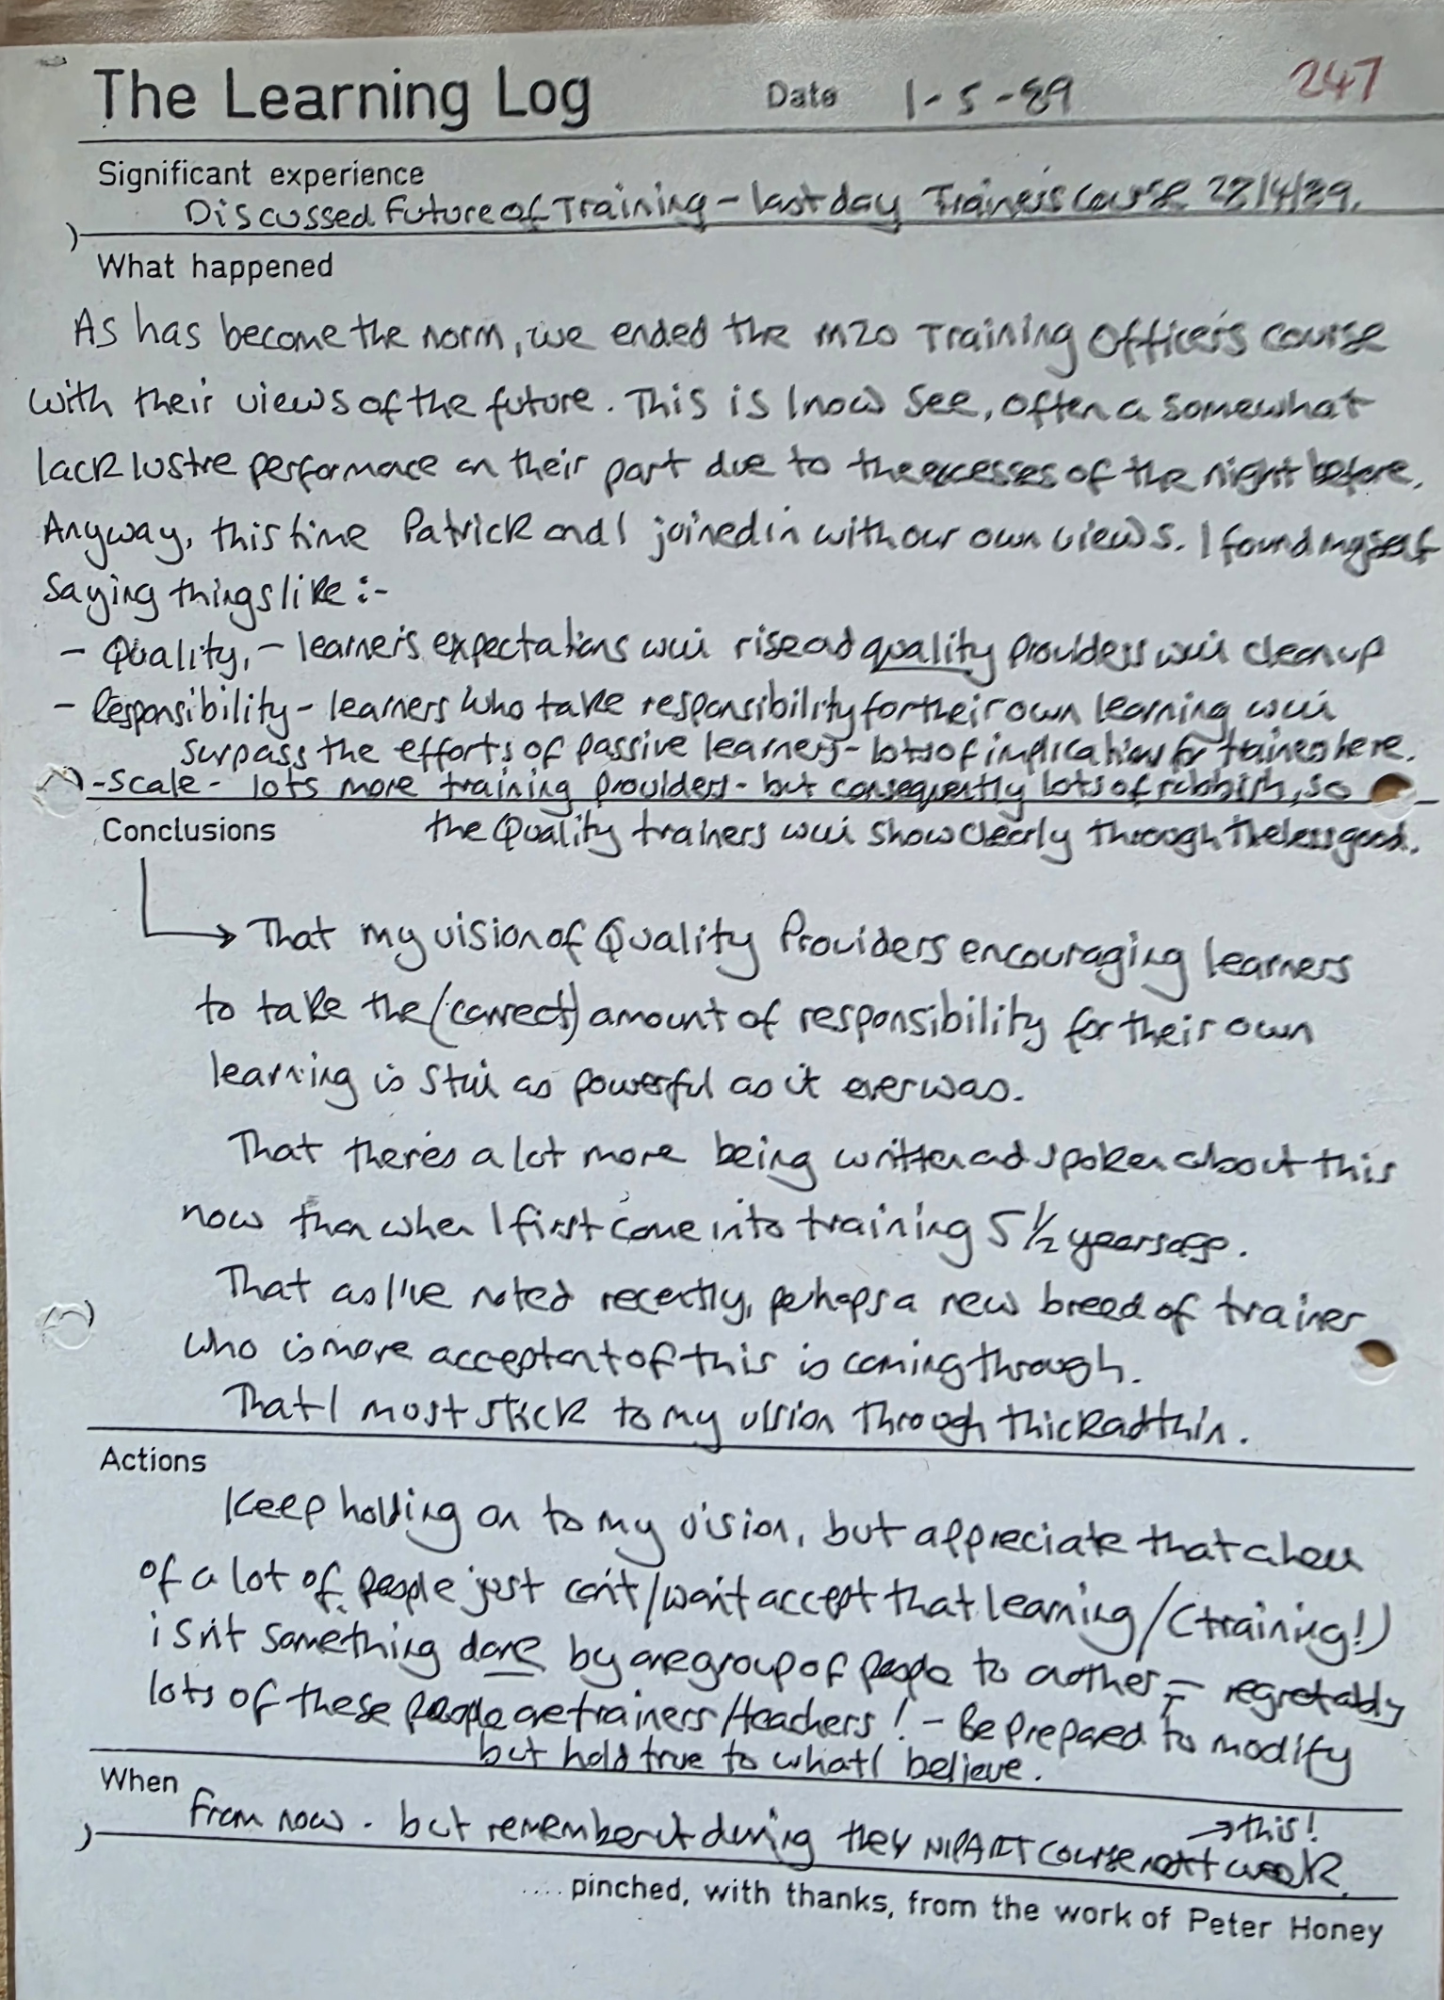 The Learning Log Date 1-5-89 247
Significant experience
Discussed Future of Training - last day Trainers Course 28/4/89.
What happened
As has become the norm, we ended the M20 Training Officer's course
with their views of the future. This is I now see, often a somewhat
lack lustre performance on their part due to the excesses of the night before.
Anyway, this time Patrick and I joined in with our own views. I found myself
saying things like :-
- Quality, - learner's expectations will rise and quality providers will clean up
- Responsibility - learners who take responsibility for their own learning will
surpass the efforts of passive learners - lots of implications for trainers here.
- Scale - lots more training providers - but consequently lots of rubbish, so
the Quality trainers will show clearly through the less good.
Conclusions
→ That my vision of Quality Providers encouraging learners
to take the (correct) amount of responsibility for their own
learning is still as powerful as it ever was.
That there's a lot more being written and spoken about this
now than when I first came into training 5 1/2 years ago.
That as I've noted recently, perhaps a new breed of trainer
who is more acceptant of this is coming through.
That I must stick to my vision through thick and thin.
Actions
Keep holding on to my vision, but appreciate that a hell
of a lot of people just can't/won't accept that learning/(training!)
isn't something done by one group of people to another - regretably
lots of these people are trainers/teachers! - Be prepared to modify
but hold true to what I believe.
When
From now. but remember it during the NIPART course this! week.
.... pinched, with thanks, from the work of Peter Honey